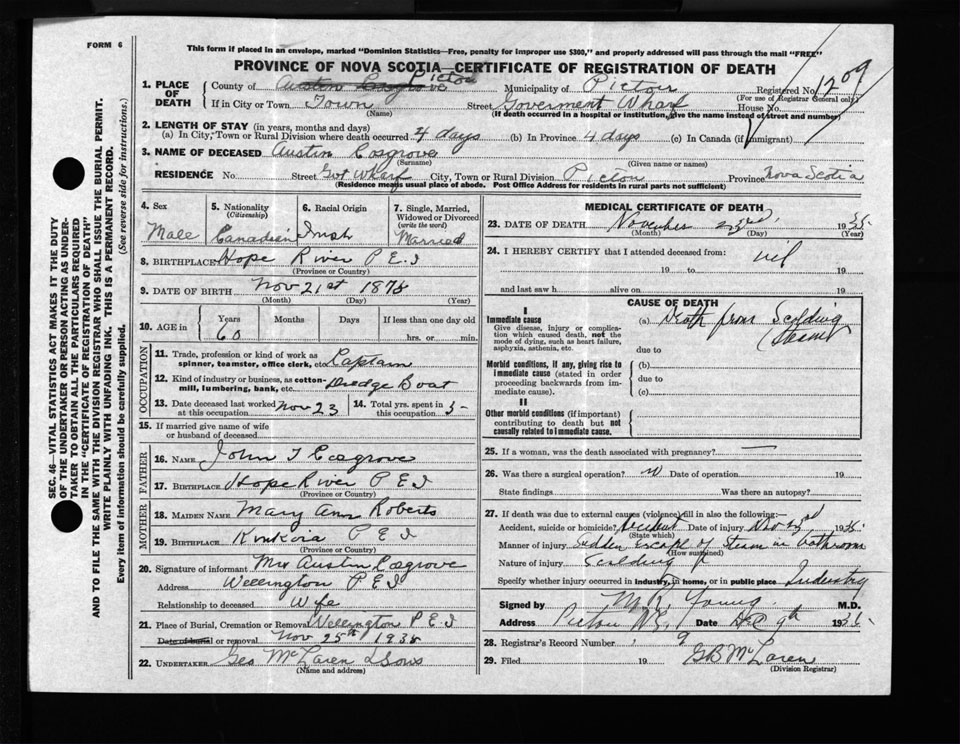 FORM 6
This form if placed in an envelope, marked "Dominion Statistics—Free, penalty for improper use $300," and properly addressed will pass through the mail "FREE"
PROVINCE OF NOVA SCOTIA—CERTIFICATE OF REGISTRATION OF DEATH
1. PLACE OF DEATH
County of Austin Cosgrove Pictou Municipality of Pictou Registered No. 1209
(For use of Registrar General only)
If in City or Town Town Street Goverment Wharf House No.
(Name) (If death occurred in a hospital or institution, give the name instead of street and number)
2. LENGTH OF STAY (in years, months and days)
(a) In City, Town or Rural Division where death occurred 4 days (b) In Province 4 days (c) In Canada (if immigrant)
3. NAME OF DECEASED Austin Cosgrove
(Surname) (Given name or names)
RESIDENCE No. Street Gvt Wharf City, Town or Rural Division Pictou Province Nova Scotia
(Residence means usual place of abode. Post Office Address for residents in rural parts not sufficient)
4. Sex
Male
5. Nationality (Citizenship)
Canadian
6. Racial Origin
Irish
7. Single, Married, Widowed or Divorced (write the word)
Married
8. BIRTHPLACE Hope River P E I
(Province or Country)
9. DATE OF BIRTH Nov 21st 1878
(Month) (Day) (Year)
10. AGE in
Years Months Days If less than one day old
60 hrs. or min.
OCCUPATION
11. Trade, profession or kind of work as
spinner, teamster, office clerk, etc. Captain
12. Kind of industry or business, as cotton-
mill, lumbering, bank, etc. Dredge Boat
13. Date deceased last worked at this occupation Nov 23
14. Total yrs. spent in this occupation 5
15. If married give name of wife
or husband of deceased
FATHER
16. NAME John T Cosgrove
17. BIRTHPLACE Hope River P E I
(Province or Country)
MOTHER
18. MAIDEN NAME Mary Ann Roberts
19. BIRTHPLACE P E I
(Province or Country)
20. Signature of informant Mrs Austin Cosgrove
Address Wellington P E I
Relationship to deceased Wife
21. Place of Burial, Cremation or Removal Wellington P E I
Date of burial or removal Nov 25th 1938
22. UNDERTAKER Geo McLaren & Sons
(Name and address)
MEDICAL CERTIFICATE OF DEATH
23. DATE OF DEATH November 23rd, 19
(Month) (Day) (Year)
24. I HEREBY CERTIFY that I attended deceased from: nil
19 to 19
and last saw h alive on 19
CAUSE OF DEATH
I
Immediate cause
Give disease, injury or complica-
tion which caused death, not the
mode of dying, such as heart failure,
asphyxia, asthenia, etc.
(a) Death from Scalding
(Steam)
due to
Morbid conditions, if any, giving rise to
immediate cause (stated in order
proceeding backwards from im-
mediate cause).
(b)
due to
(c)
II
Other morbid conditions (if important)
contributing to death but not
causally related to immediate cause.
25. If a woman, was the death associated with pregnancy?
26. Was there a surgical operation? Date of operation 19
State findings Was there an autopsy?
27. If death was due to external causes (violence) fill in also the following:—
Accident, suicide or homicide? Accident Date of injury Nov 23rd 19
(State which)
Manner of injury Sudden Escape of Steam in bathroom
(How sustained)
Nature of injury Scalding
Specify whether injury occurred in industry, in home, or in public place Industry
Signed by M R Young M.D.
Address Pictou N.S. Date Dec 9th 19
28. Registrar's Record Number 9
29. Filed 19 GB McLaren
(Division Registrar)
SEC. 46—VITAL STATISTICS ACT MAKES IT THE DUTY
OF THE UNDERTAKER OR PERSON ACTING AS UNDER-
TAKER TO OBTAIN ALL THE PARTICULARS REQUIRED
IN THE "CERTIFICATE OF REGISTRATION OF DEATH"
AND TO FILE THE SAME WITH THE DIVISION REGISTRAR WHO SHALL ISSUE THE BURIAL PERMIT.
WRITE PLAINLY WITH UNFADING INK. THIS IS A PERMANENT RECORD.
Every item of information should be carefully supplied. (See reverse side for instructions.)